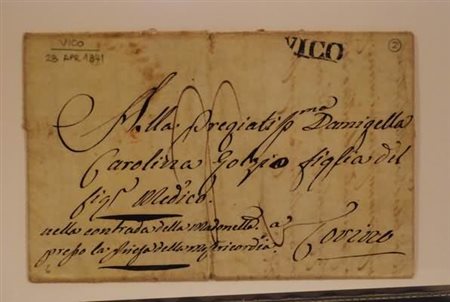 VICO
28 APR 1841
VICO
2
Alla Pregiatis^ma Damigella
Carolina figlia del
Sig^r Medico.
nella contrada della Madonetta a
presso la chiesa della Misericordia. Torino